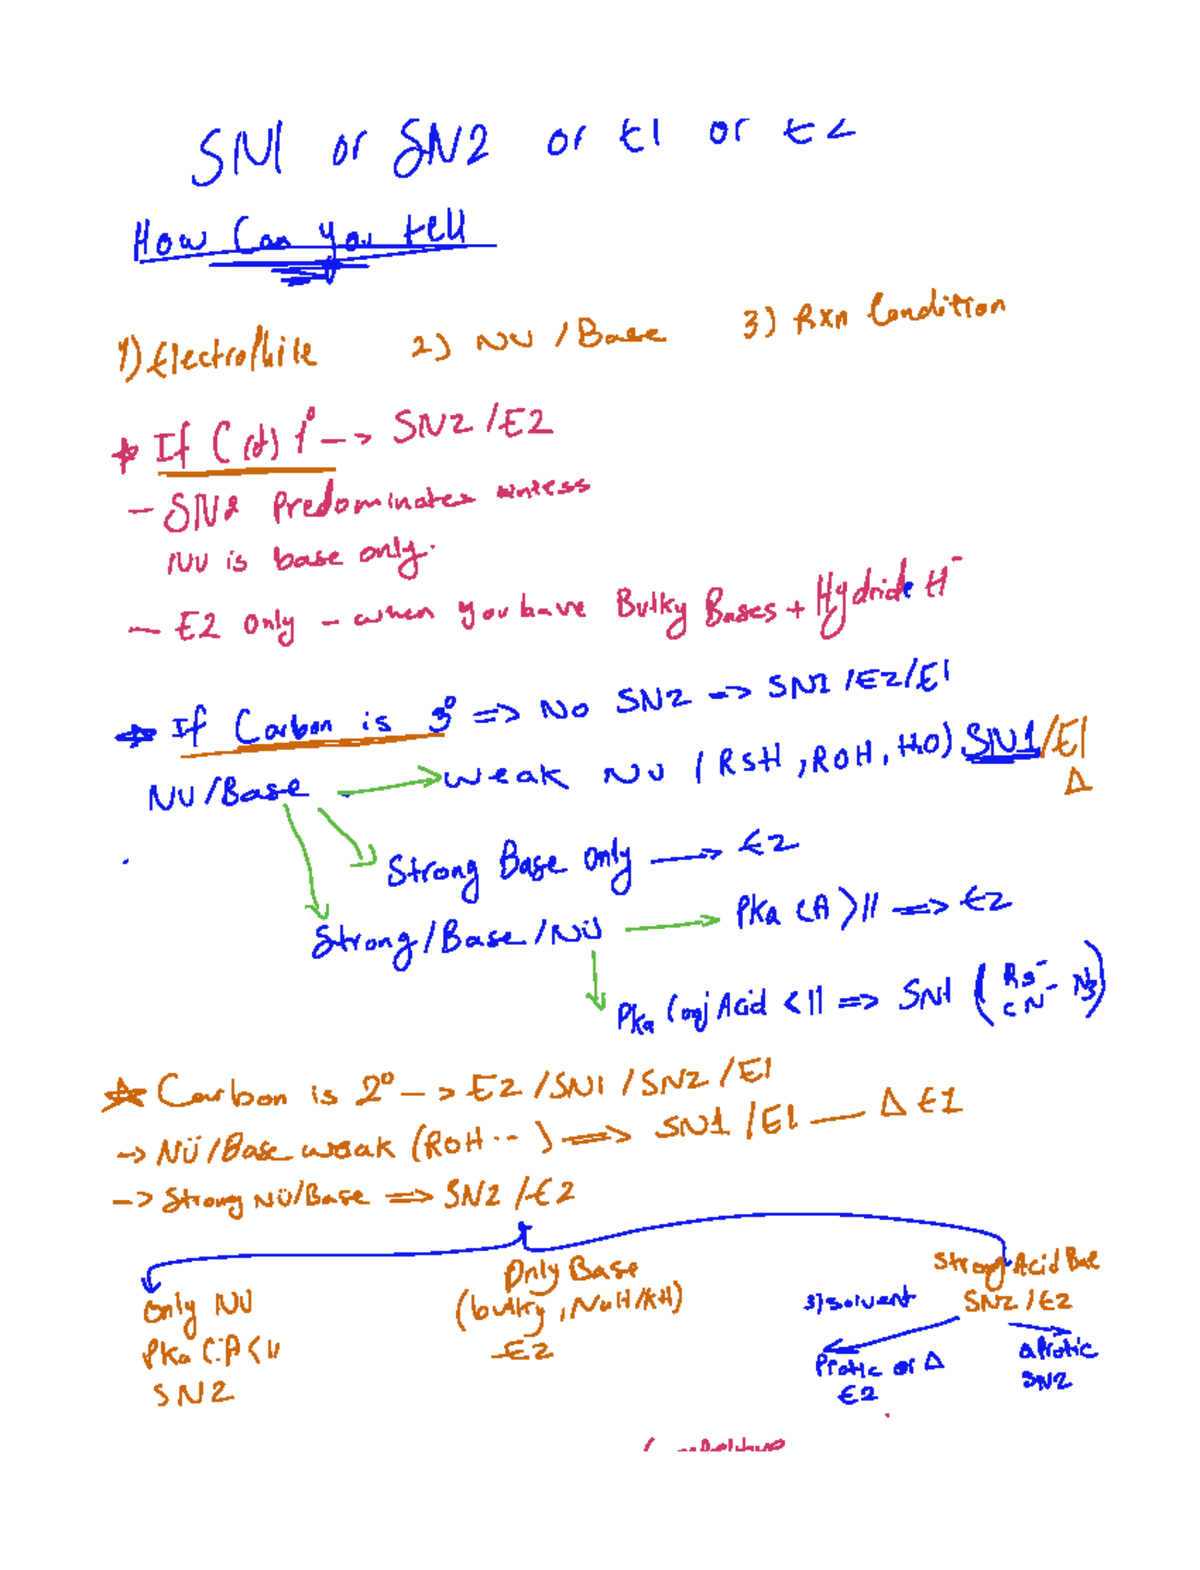 SN1 or SN2 or E1 or E2
How Can you tell
1) Electrophile 2) NU / Base 3) Rxn Condition
If C (α) 1° -> SN2 / E2
- SN2 Predominates unless
NU is base only.
- E2 only - when you have Bulky Bases + Hydride H⁻
If Carbon is 3° => No SN2 => SN1 / E2 / E1
NU/Base weak NU (RSH, ROH, H2O) SN1 / E1
Δ
Strong Base only → E2
Strong / Base / Nü → Pka CA > 11 => E2
Pka Conj Acid < 11 => SN1 (RS⁻ CN⁻ N3)
Carbon is 2° -> E2 / SN1 / SN2 / E1
-> Nü / Base weak (ROH ··) => SN1 / E1 — Δ E1
-> Strong Nü/Base => SN2 / E2
Only NU
Pka C.A < 11
SN2
Only Base
(bulky, NaH/KH)
E2
Strong Acid Bae
3) solvent SN2 / E2
Protic or Δ
E2
aprotic
SN2